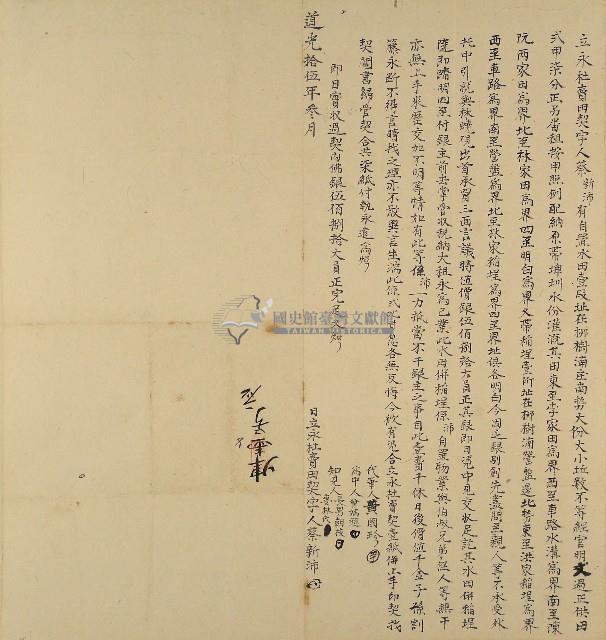 立永杜賣田契字人蔡新沛有自置水田壹段址在柳樹湳庄南勢大份大小坵數不等經官明丈過正供田
弍甲柒分正另番租按甲照例配納系帶埤圳水份灌溉其田東至李家田為界西至車路水溝為界南至陳
阮兩家田為界北至林家田為界四至明白為界又帶稻埕壹所址在柳樹湳營盤邊北勢東至洪家稻埕為界
西至車路為界南至營盤為界北至林家稻埕為界四至界址俱各明白今因乏銀別創先盡問至親人等不承受外
托中引就與林 出首承買三面言議時值價銀伍佰捌拾大員正其銀即日憑中見交收足訖其水田併稻埕
隨即踏明四至付銀主前去掌管收稅納大租永為己業此水田併稻埕係沛自置物業與伯叔兄弟侄人等無干
亦無上手來歷交加不明等情如有此等係沛一力抵當不干銀主之事自此壹賣千休日後價值千金子孫割
藤永斷不得言贖找之理亦不敢異言生端此係 願各無反悔今欲有憑合立永杜賣契壹紙併上手印契找
契鬮書歸管契合共柒紙付執永遠為炤
即日實收過契內佛銀伍佰捌拾大員正完足又炤
代筆人黃國珍
為中人
知見人
道光拾伍年叁月 日立永杜賣田契字人蔡新沛
國史館臺灣文獻館
TAIWAN HISTORICA